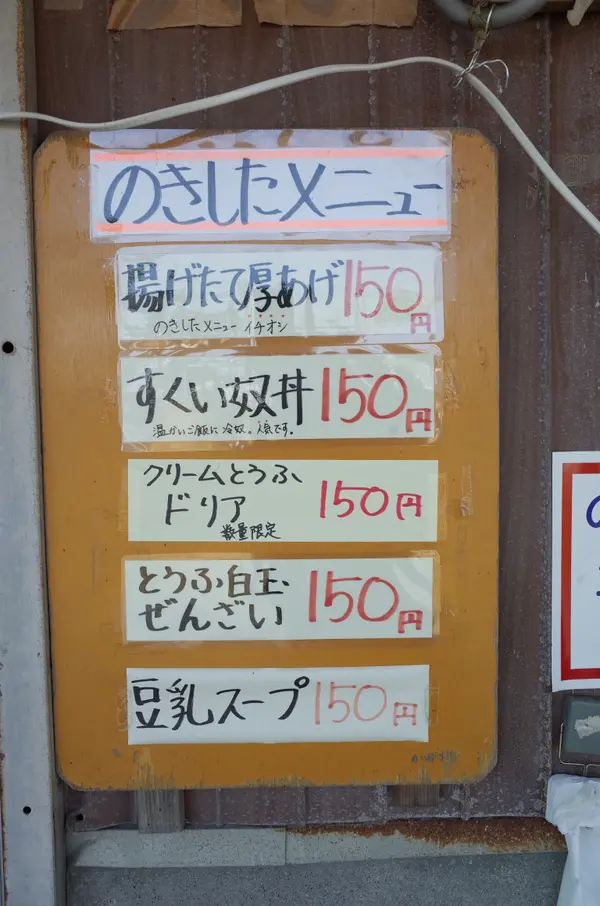 のきしたメニュー
揚げたて厚あげ 150円
のきしたメニュー イチオシ
すくい奴丼 150円
温かいご飯に冷奴。人気です。
クリームとうふ
ドリア 150円
数量限定
とうふ白玉
ぜんざい 150円
豆乳スープ 150円